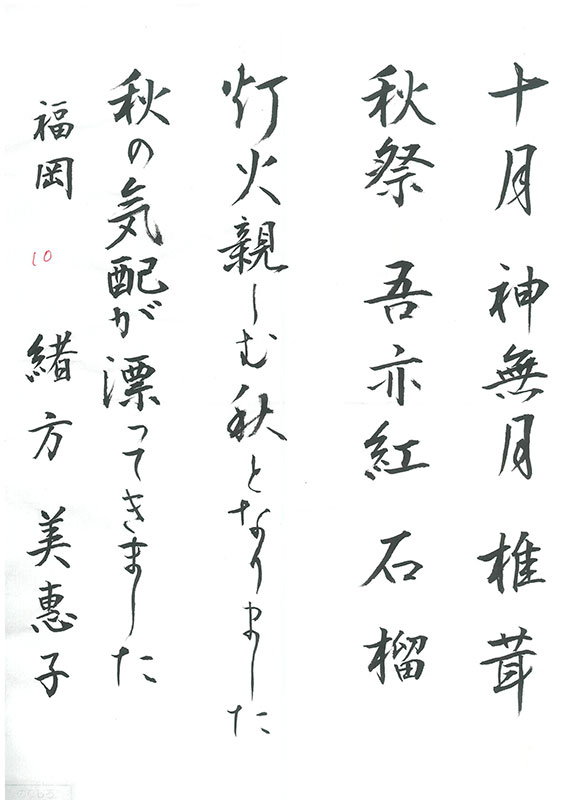 十月 神無月 椎茸
秋祭 吾亦紅 石榴
灯火親しむ秋となりました
秋の気配が漂ってきました
福岡 10 緒方 美惠子